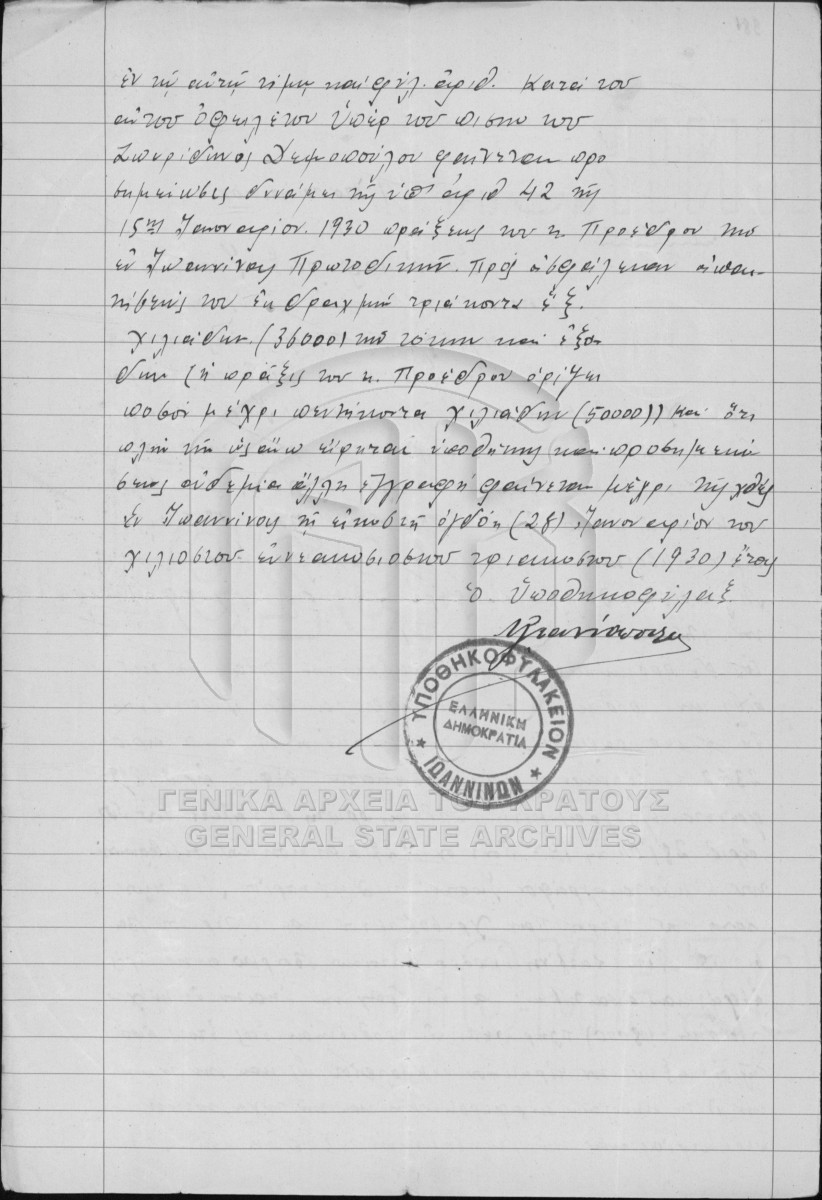 ἐν τῷ αὐτῷ τόμῳ καὶ φύλ. ἀριθ. κατὰ τοῦ
αὐτοῦ ὀφειλέτου ὑπὲρ τοῦ
Σπυρίδωνος φαίνεται προ
σημείωσις δυνάμει τῆς ὑπ' ἀριθ 42 τῆς
15ης Ἰανουαρίου 1930 πράξεως τοῦ κ. Προέδρου τῶν
ἐν Ἰωαννίνοις Πρωτοδικῶν. Πρὸς ἀσφάλειαν ἀπαι
τήσεώς του ἐκ δραχμῶν τριάκοντα ἓξ
χιλιάδων (36000) τῶν τόκων καὶ ἐξό
δων (ἡ πρᾶξις τοῦ κ. Προέδρου ὁρίζει
ποσὸν μέχρι πεντήκοντα χιλιάδων (50000)) καὶ ὅτι
πλὴν τῆς ὡς ἄνω εἴρηται ὑποθήκης καὶ προσημειώ
σεως οὐδεμία ἄλλη ἐγγραφὴ φαίνεται μέχρι τῆς χθὲς
Ἐν Ἰωαννίνοις τῇ εἰκοστῇ ὀγδόῃ (28) Ἰανουαρίου τοῦ
χιλιοστοῦ ἐννεακοσιοστοῦ τριακοστοῦ (1930) ἔτους
ὁ Ὑποθηκοφύλαξ
ΥΠΟΘΗΚΟΦΥΛΑΚΕΙΟΝ
ΕΛΛΗΝΙΚΗ
ΔΗΜΟΚΡΑΤΙΑ
ΙΩΑΝΝΙΝΩΝ
ΓΕΝΙΚΑ ΑΡΧΕΙΑ ΤΟΥ ΚΡΑΤΟΥΣ
GENERAL STATE ARCHIVES